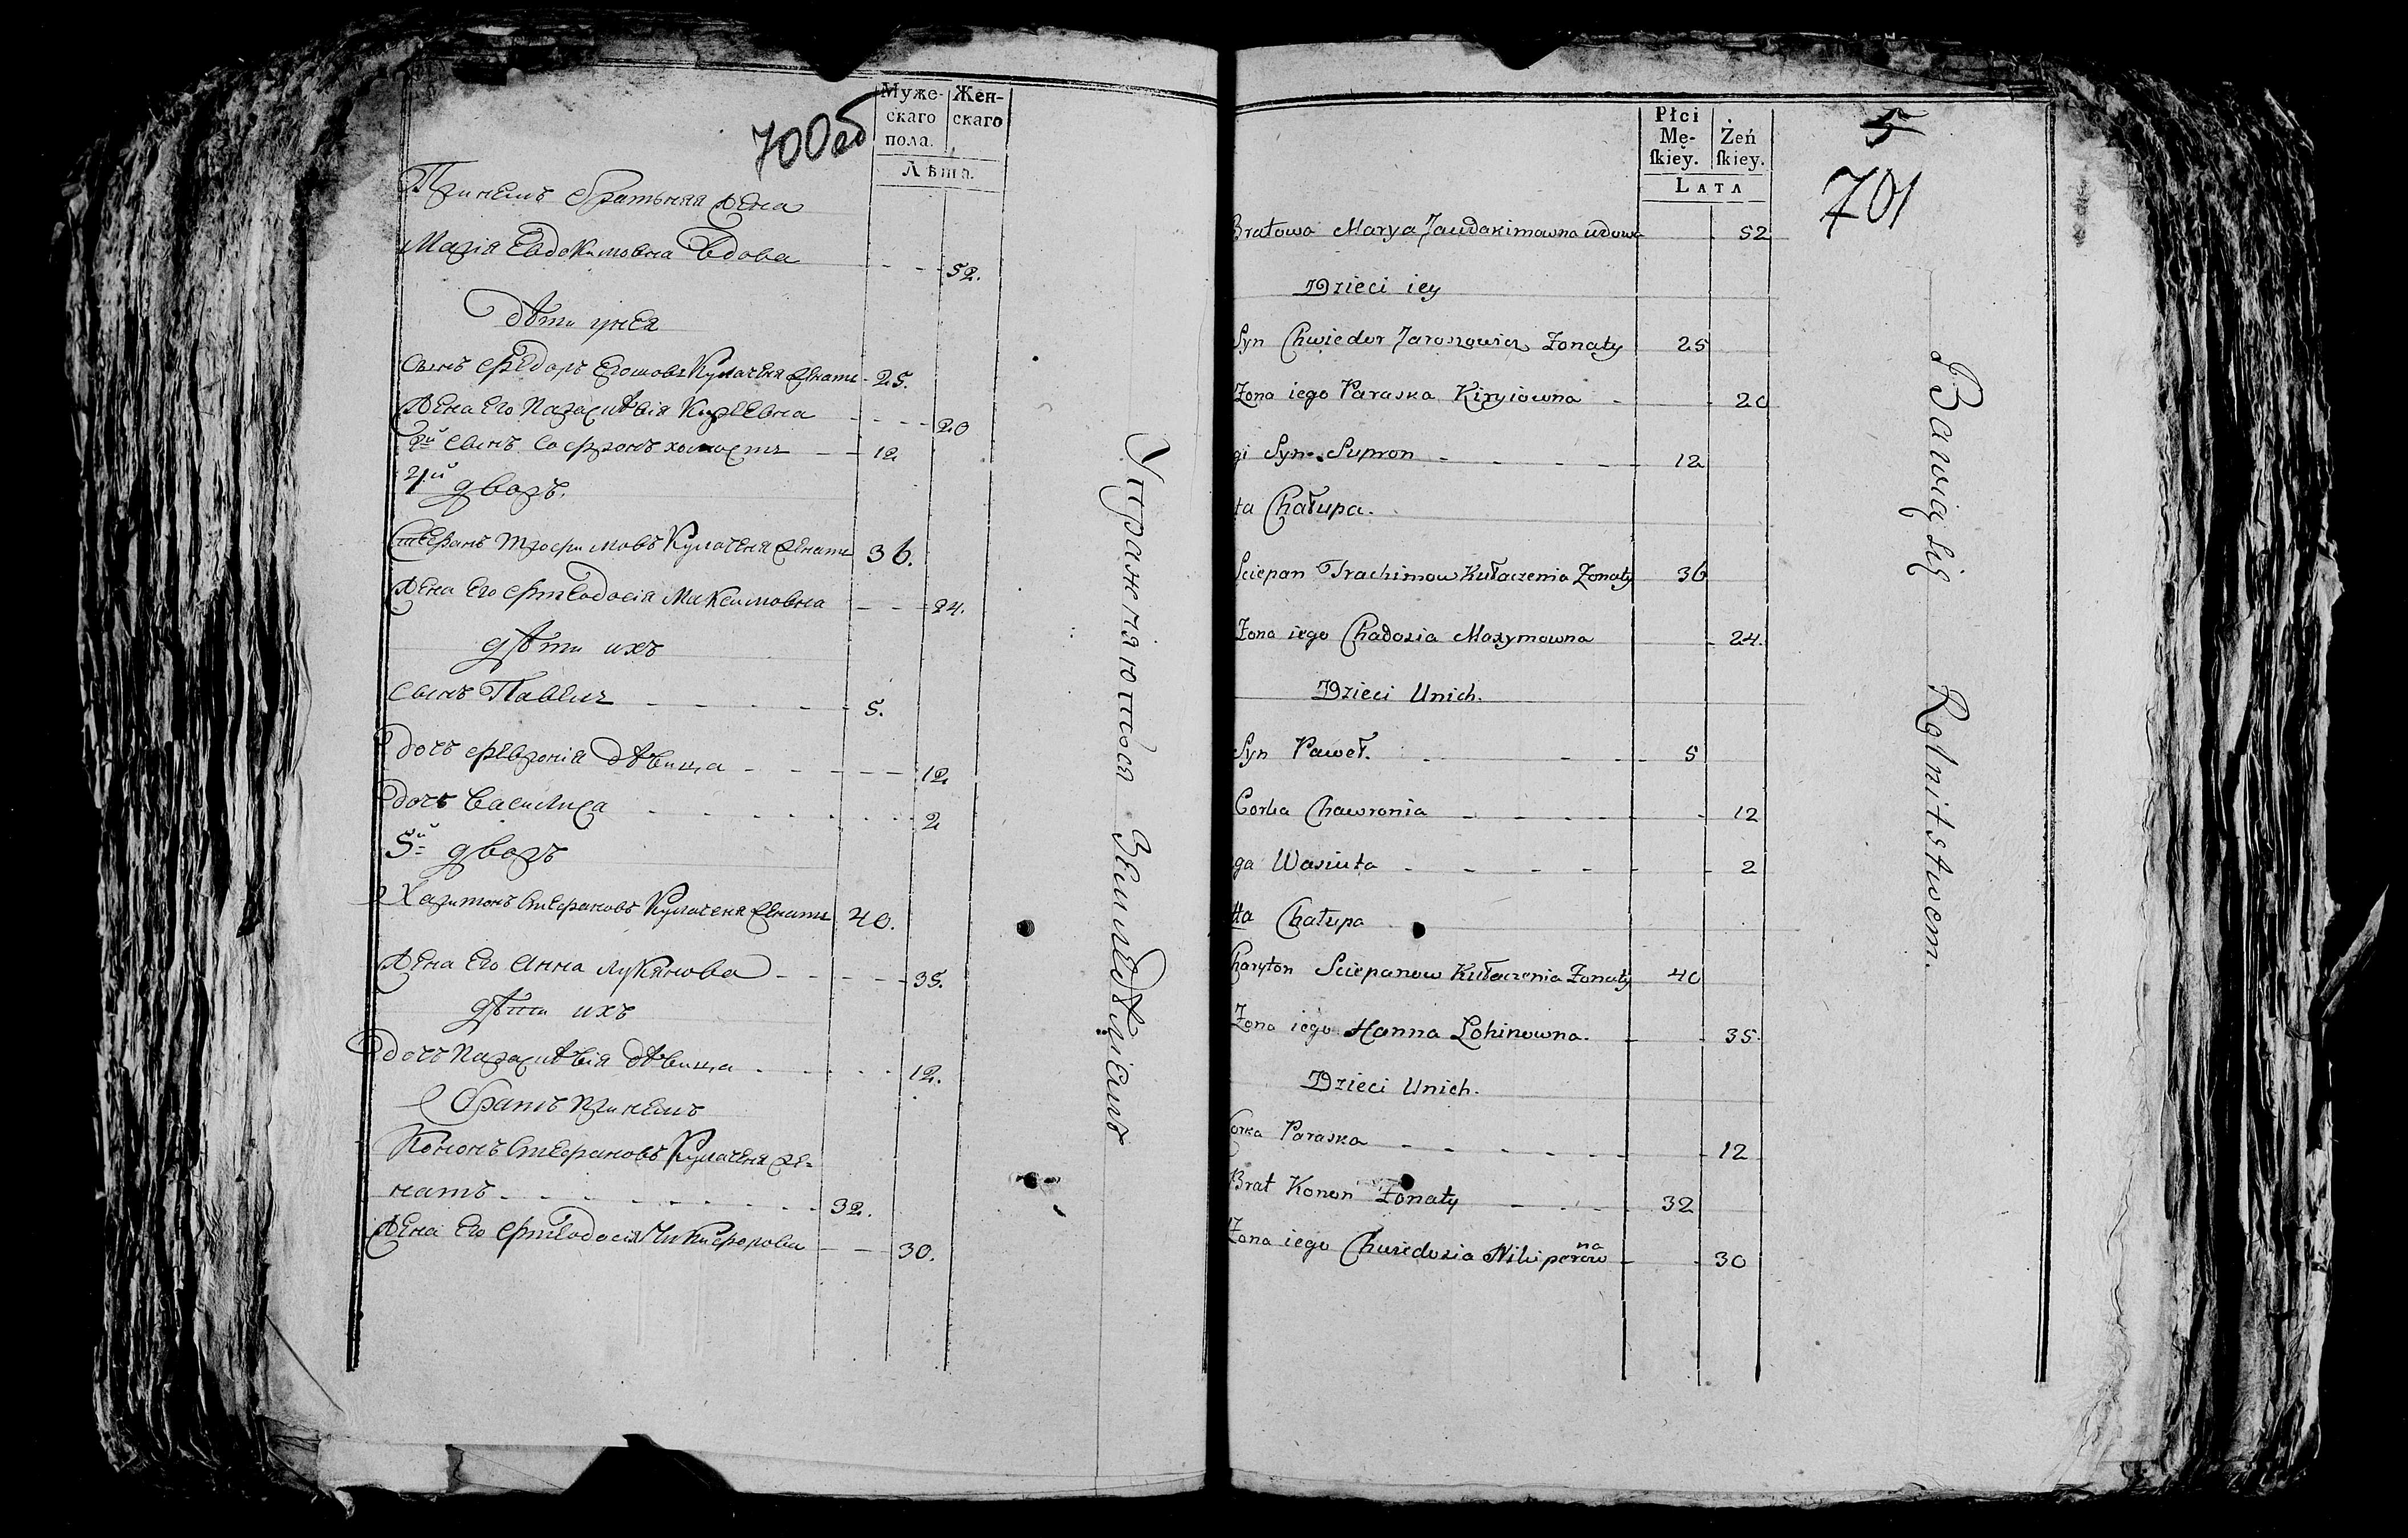 700об
Муже- Жен-
скаго скаго
пола.
Лѣта.
При немъ братьняя жена
Марія Евдокимовна вдова 52.
дѣти унея
Сынъ Федоръ Ерошовъ Кулаченя женатъ 25.
Жена Его Параскѣвія Киреевна 20
2й Сынъ Софронъ холостъ 12
4й дворъ.
Степанъ Трофимовъ Кулаченя женатъ 36.
Жена Его Феодосія Максимовна 24.
дѣти ихъ
Сынъ Павелъ 5.
дочь Февронія дѣвица 12
дочь Василиса 2
5й дворъ
Харитонъ Степановъ Кулаченя женатъ 40.
Жена Его Анна Лукянова 35.
дѣти ихъ
дочь Параскѣвія дѣвица 12.
Братъ при немъ
Кононъ Степановъ Кулаченя же=
натъ 32.
Жена Его Феодосія Никифорова 30.
Упражняются Земледѣліемъ
5
701
Płci
Mę- Żeń
skiey. skiey.
LATA
Bratowa Marya Jaudakimowna udowa 52
Dzieci iey
Syn Chwiedor Jaroszowicz Zonaty 25
Zona iego Paraska Kiryiowna 20
gi Syn Supron 12
ta Chałupa.
Sciepan Trachimow Kułaczenia Zonaty 36
Zona iego Chadosia Maxymowna 24.
Dzieci Unich.
Syn Paweł. 5
Corka Chawronia 12
ga Wasiuta 2
tta Chałupa
Charyton Sciepanow Kułaczenia Zonaty 40
Zona iego Hanna Lohinowna. 35.
Dzieci Unich.
Corka Paraska 12
Brat Konon Zonaty 32
Zona iego Chwiedosia Nikiperowna 30
Bawią się Rolnitstwem.